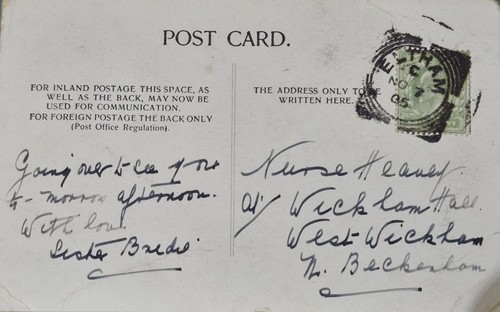 POST CARD.
FOR INLAND POSTAGE THIS SPACE, AS
WELL AS THE BACK, MAY NOW BE
USED FOR COMMUNICATION.
FOR FOREIGN POSTAGE THE BACK ONLY
(Post Office Regulation).
THE ADDRESS ONLY TO BE
WRITTEN HERE.
ELTHAM
C
NO 7
05
Going over to see you
to-morrow afternoon.
With love
Sister
Nurse Heavey
at Wickham Hall
West Wickham
N. Beckenham